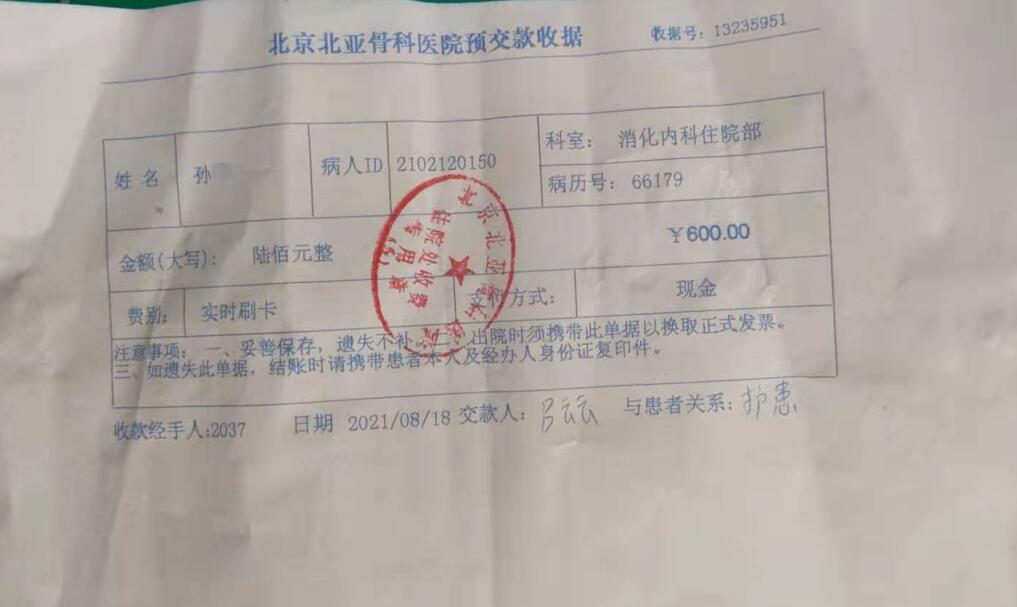 北京北亚骨科医院预交款收据
收据号：13235951
姓名 孙 病人ID 2102120150 科室： 消化内科住院部
病历号：66179
金额(大写)： 陆佰元整 ￥600.00
费别： 实时刷卡 支付方式： 现金
注意事项：一、妥善保存，遗失不补。二、出院时须携带此单据以换取正式发票。
三、如遗失此单据，结账时请携带患者本人及经办人身份证复印件。
收款经手人:2037 日期 2021/08/18 交款人：吕云云 与患者关系：护患
住院处收费
专用章